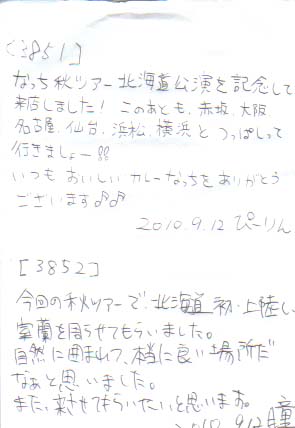 [3851]
なっち秋ツアー北海道公演を記念して
来店しました! このあとも、赤坂、大阪
名古屋、仙台、浜松、横浜とつっぱしって
行きましょー!!
いつもおいしいカレーなっちをありがとう
ございます♪♪
2010.9.12 ぴーりん
[3852]
今回の秋ツアーで、北海道初・上陸し、
室蘭を周らせてもらいました。
自然に囲まれて、本当に良い場所だ
なぁと思いました。
また、来させてもらいたいと思います。
2010.9.12 瞳